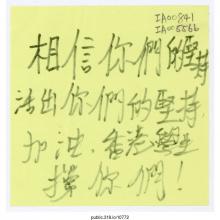 IA00841
IA005566
相信你們的堅持
活出你們的堅持
加油、香港學生
撐你們！
public.318.io/10772